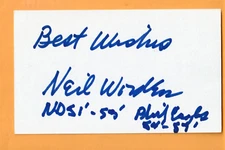 Best Wishes
Neil Worden
ND 51'-53' Phil Eagles
54'-57'